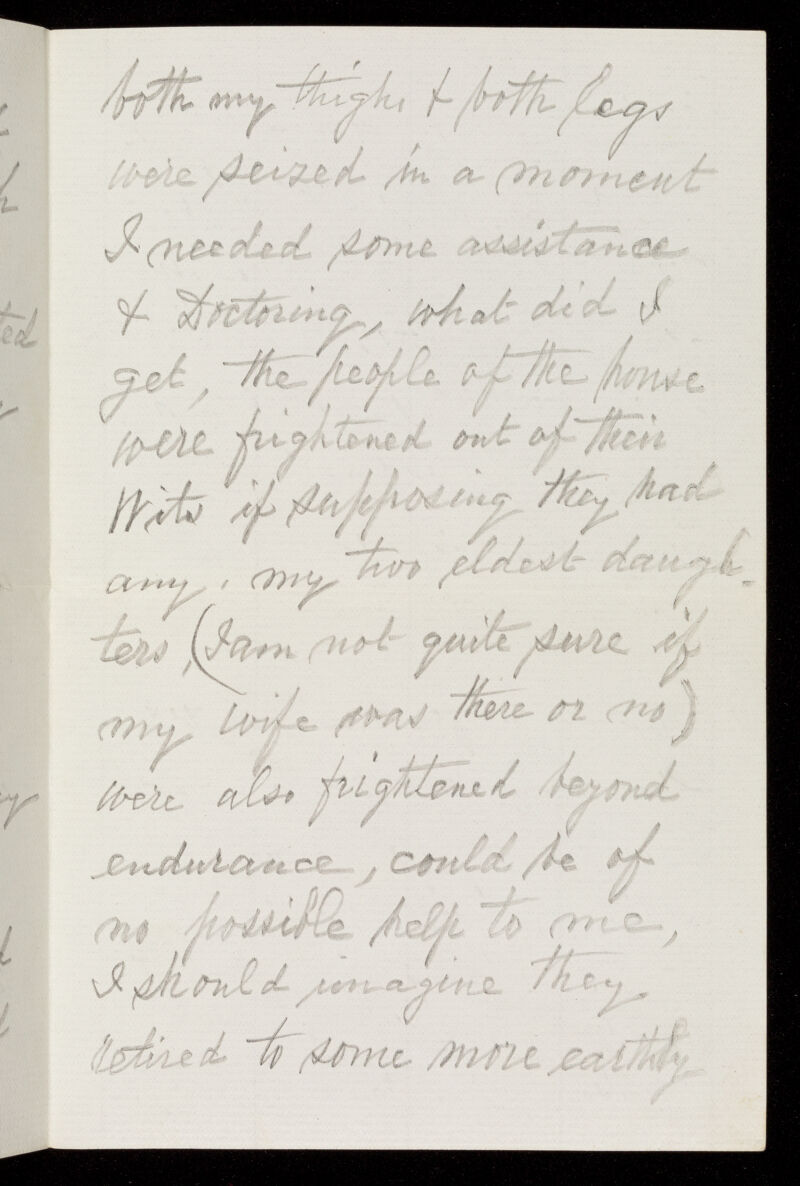 both my thighs & both legs
were seized in a moment
I needed some assistance
& Doctoring, what did I
get, the people of the house
were frightened out of their
Wits if supposing they had
any. my two eldest daugh-
ters, (I am not quite sure if
my wife was there or no)
were also frightened beyond
endurance, could be of
no possible help to me,
I should imagine they
retired to some more earthly